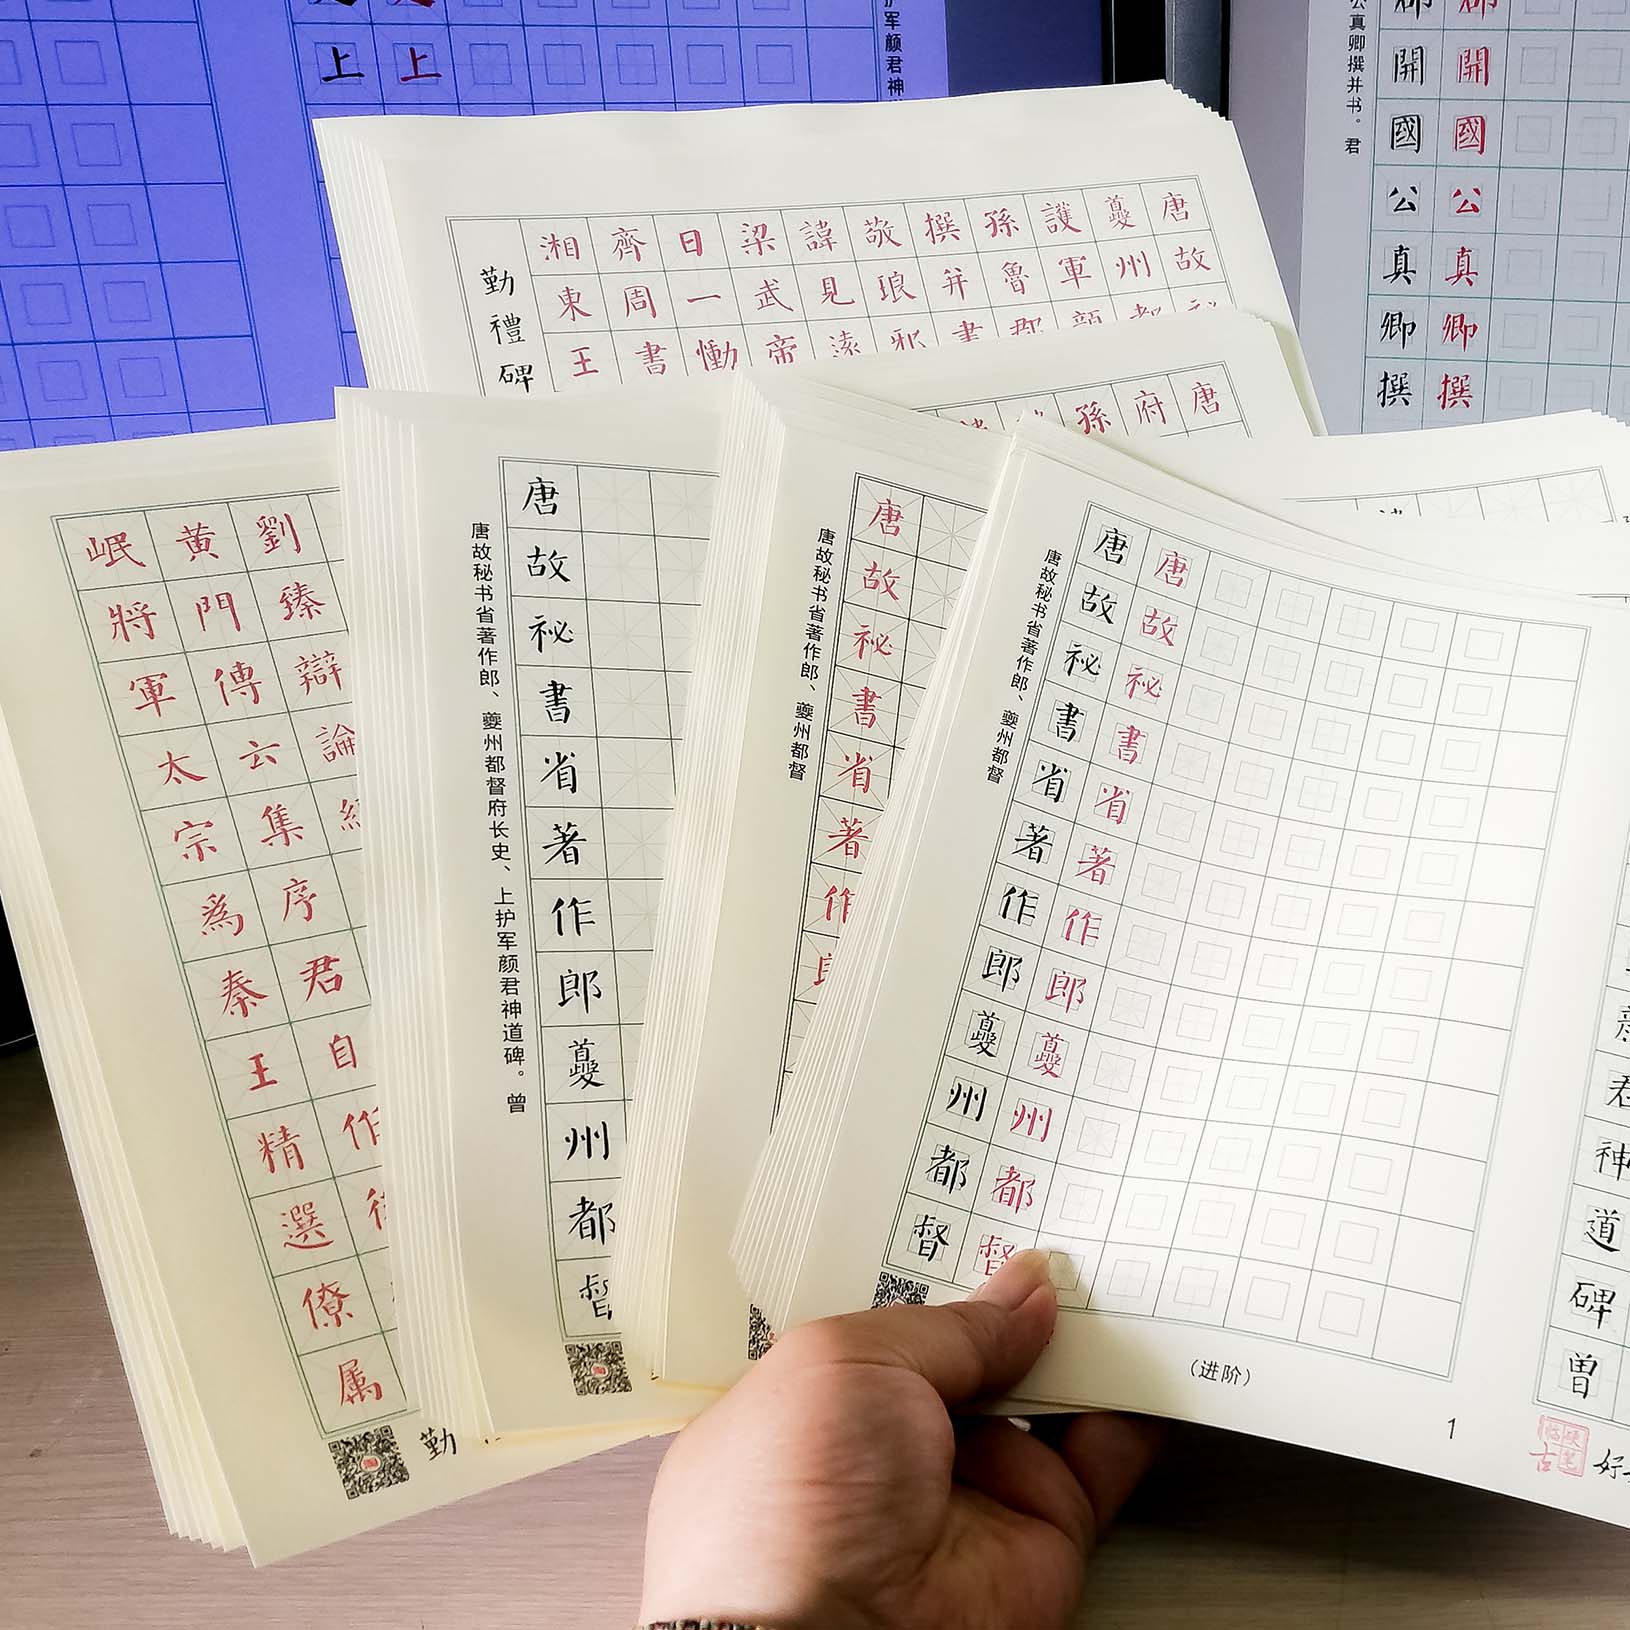 上 上
护军颜君神
公真卿撰并书。君
郡 郡
開 開
國 國
公 公
真 真
卿 卿
撰 撰
唐故
夔州都
護軍
孫魯郡
撰并書
敬琅邪
諱見遠
梁武帝
日一慟
齊周書
湘東王
勤禮碑
唐
府
孫
劉臻辯論
黄門傳六集序君自作
岷將軍太宗爲秦王精選僚属
勤
唐故秘书省著作郎、夔州都督府长史、上护军颜君神道碑。曾
唐故祕書省著作郎夔州都督
唐故秘书省著作郎、夔州都督
唐故祕書省著作郎
唐故秘书省著作郎、夔州都督
唐故祕書省著作郎夔州都督
唐故祕書省著作郎夔州都督
君神道碑曾
(进阶)
1
硬笔临古
好